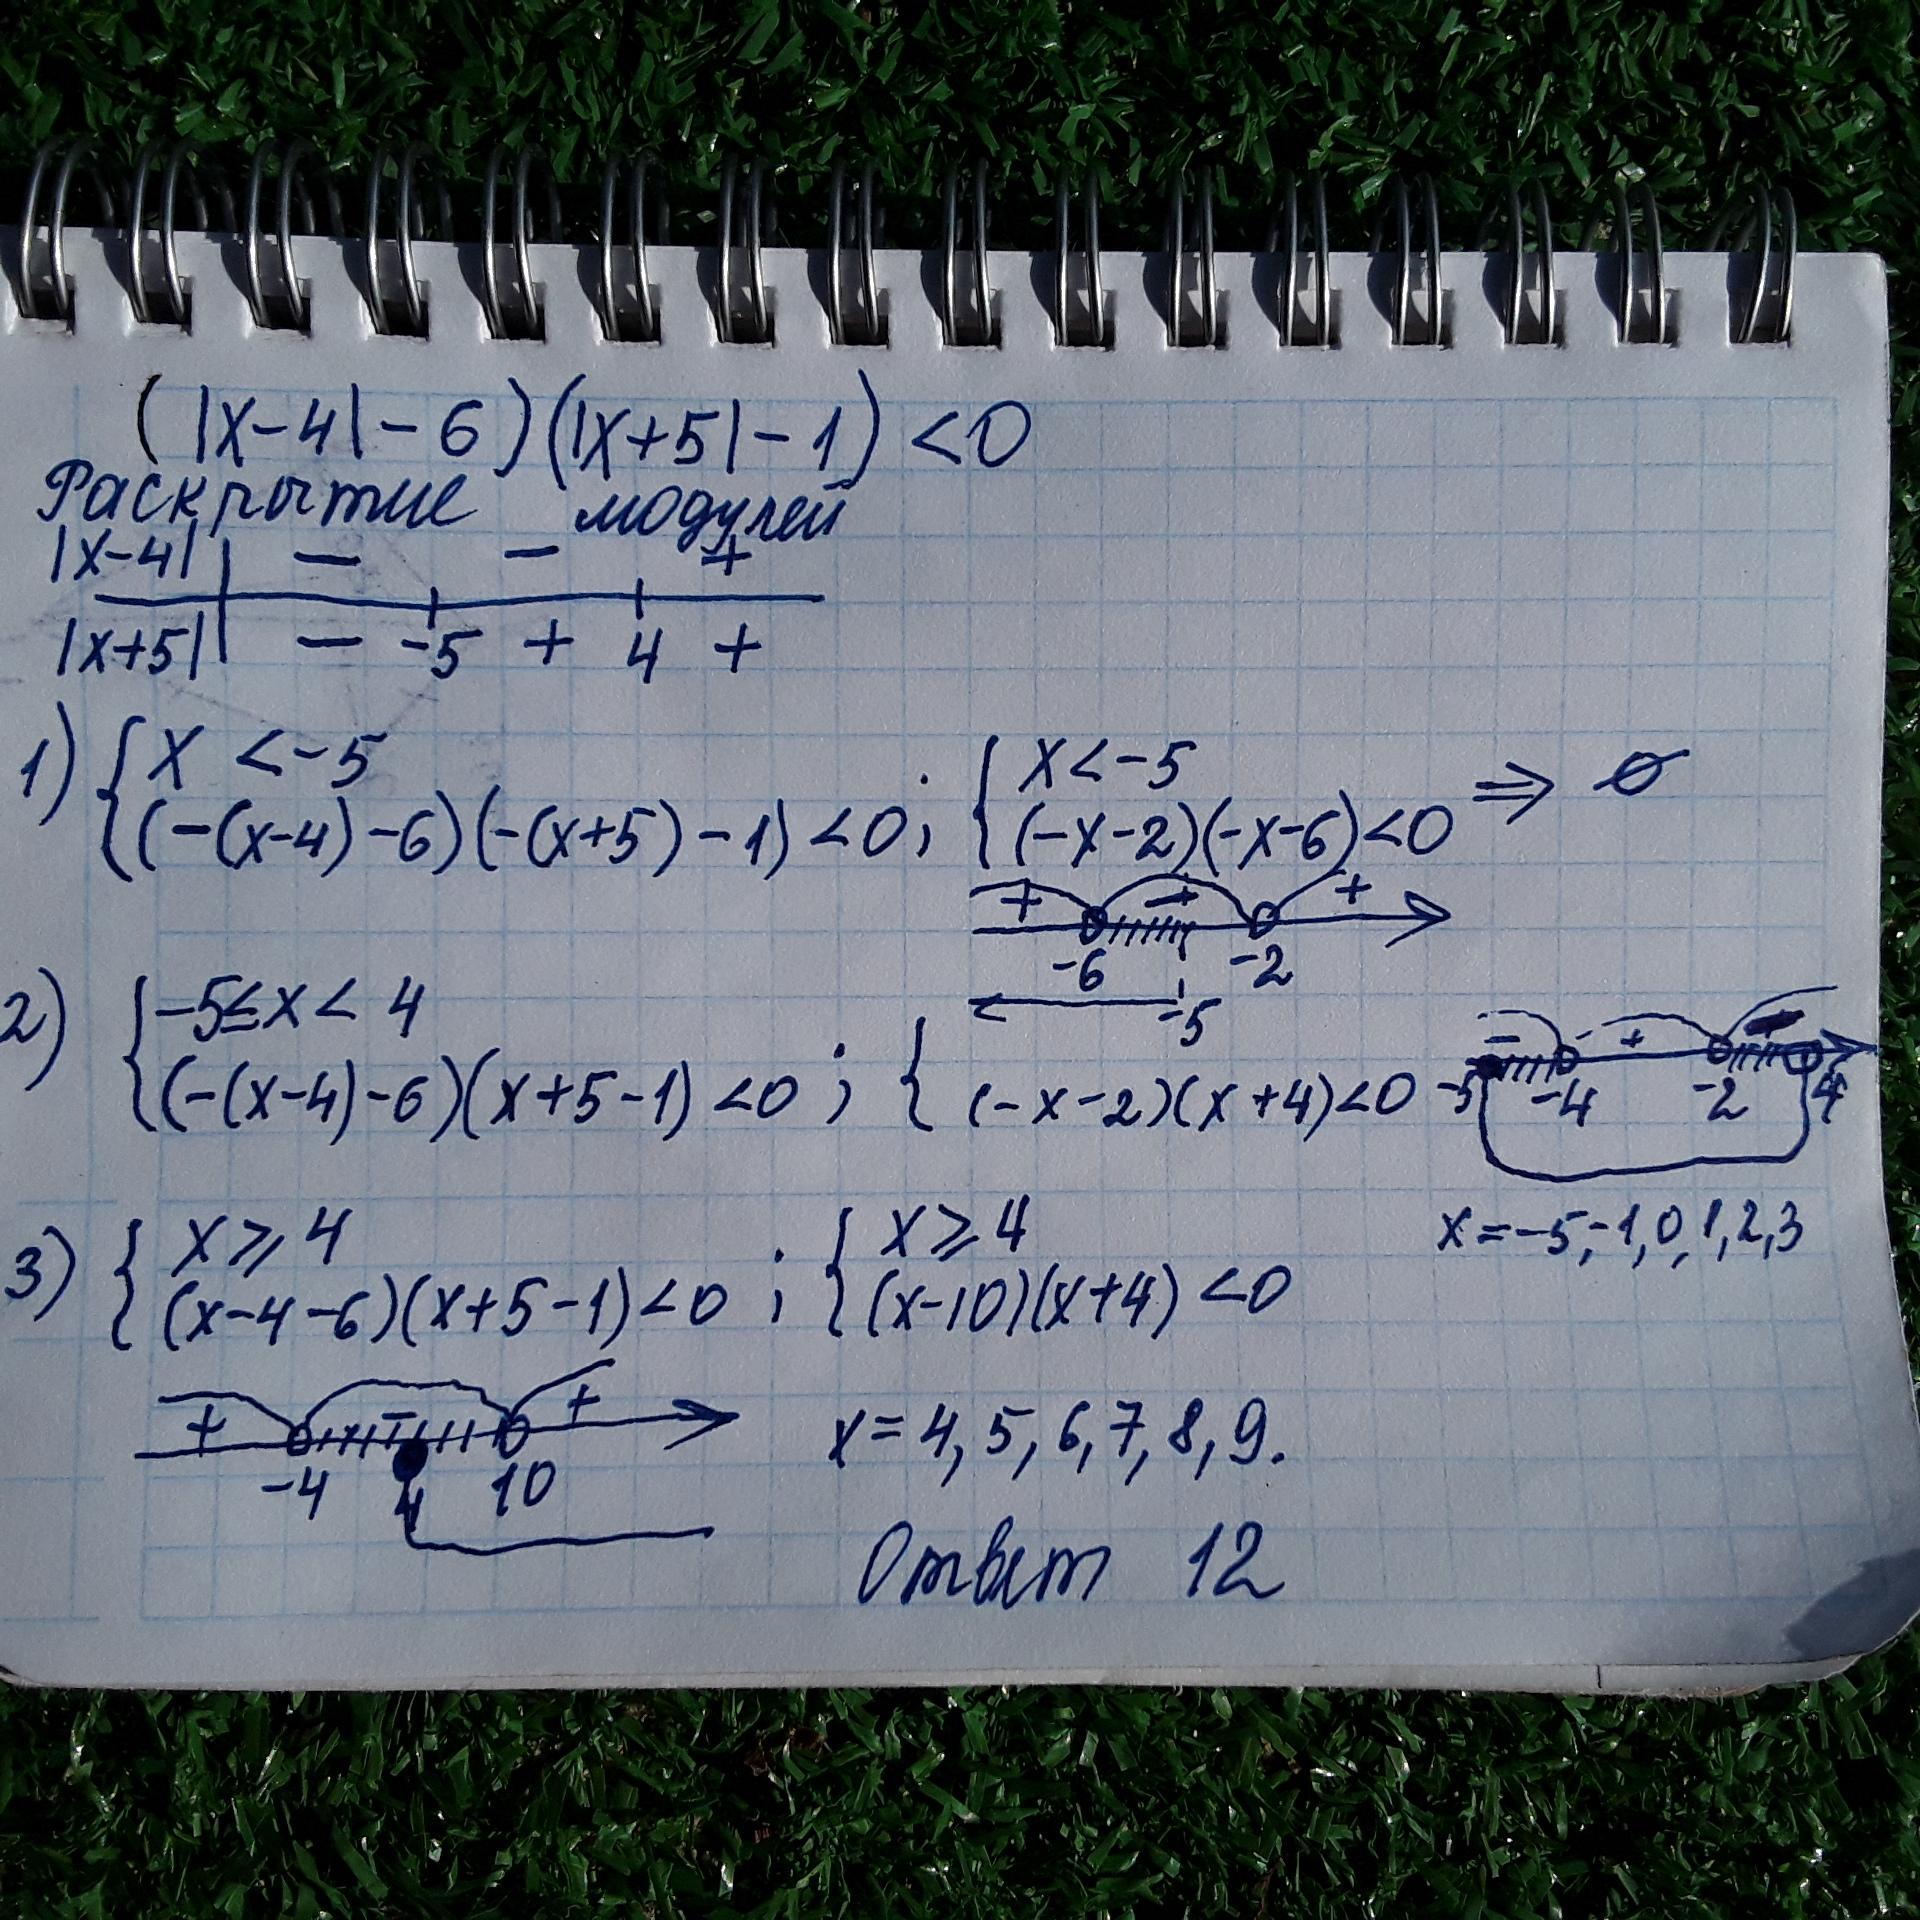 (|x-4|-6)(|x+5|-1)<0
Раскрытие модулей
|x-4| − − +
|x+5| − -5 + 4 +
1) { x<-5
(-(x-4)-6)(-(x+5)-1)<0; { x<-5
(-x-2)(-x-6)<0 ⇒ ∅
+ − +
-6 -2
-5
2) { -5≤x<4
(-(x-4)-6)(x+5-1)<0; { (-x-2)(x+4)<0
− + −
-5 -4 -2 4
x=-5,-1,0,1,2,3
3) { x⩾4
(x-4-6)(x+5-1)<0; { x⩾4
(x-10)(x+4)<0
+ − +
-4 4 10
x=4,5,6,7,8,9.
Ответ 12